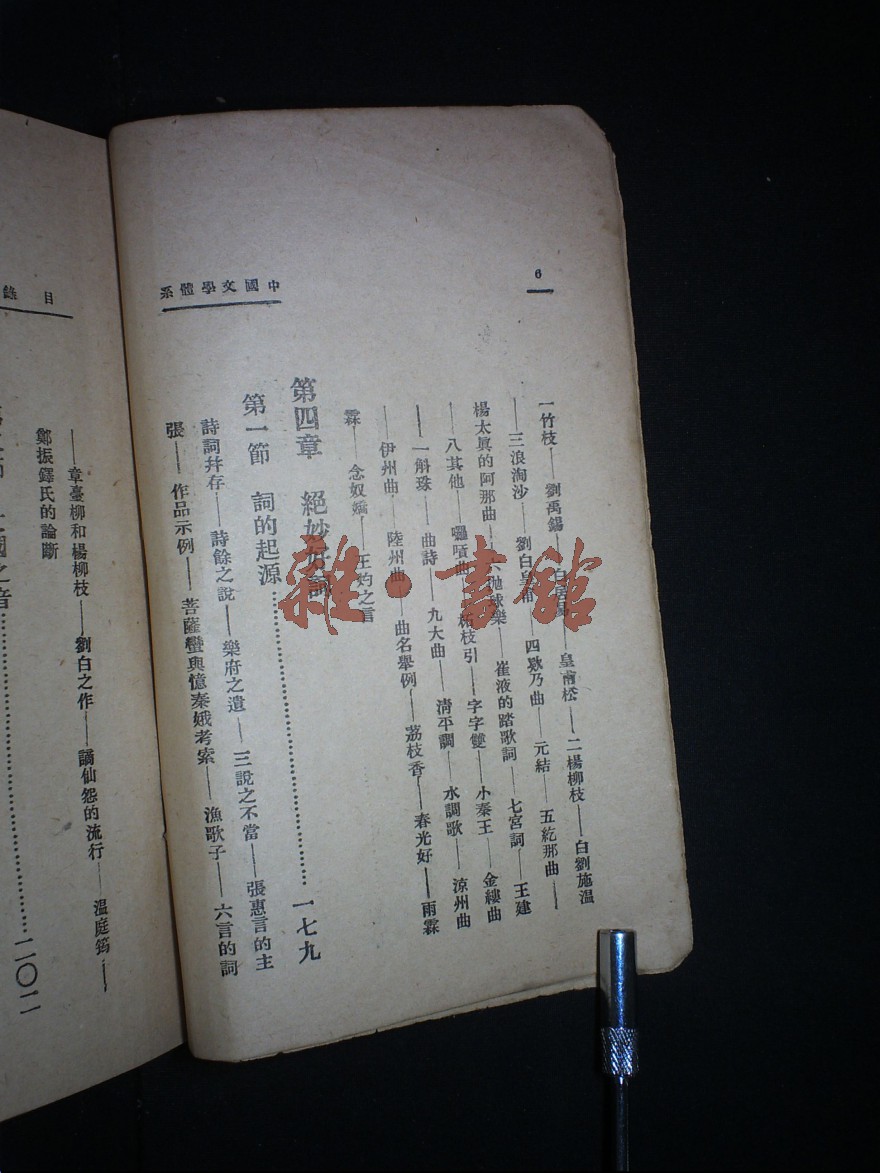 中國文學體系
6
一竹枝——劉禹錫——白居易——皇甫松——二楊柳枝——白劉施溫
——三浪淘沙——劉白皇甫——四欸乃曲——元結——五紇那曲——
楊太眞的阿那曲——六拋球樂——崔液的踏歌詞——七宮詞——王建
——八其他——囉嗊曲——柘枝引——字字雙——小秦王——金縷曲
——一斛珠——曲詩——九大曲——清平調——水調歌——涼州曲
——伊州曲——陸州曲——曲名舉例——荔枝香——春光好——雨霖
霖——念奴嬌——王灼之言
第四章 絕妙好詞
第一節 詞的起源……一七九
詩詞幷存——詩餘之說——樂府之遺——三說之不當——張惠言的主
張——作品示例——菩薩蠻與憶秦娥考索——漁歌子——六言的詞
目錄
——章臺柳和楊柳枝——劉白之作——謫仙怨的流行——溫庭筠——
鄭振鐸氏的論斷
之音……二〇二
雜·書館